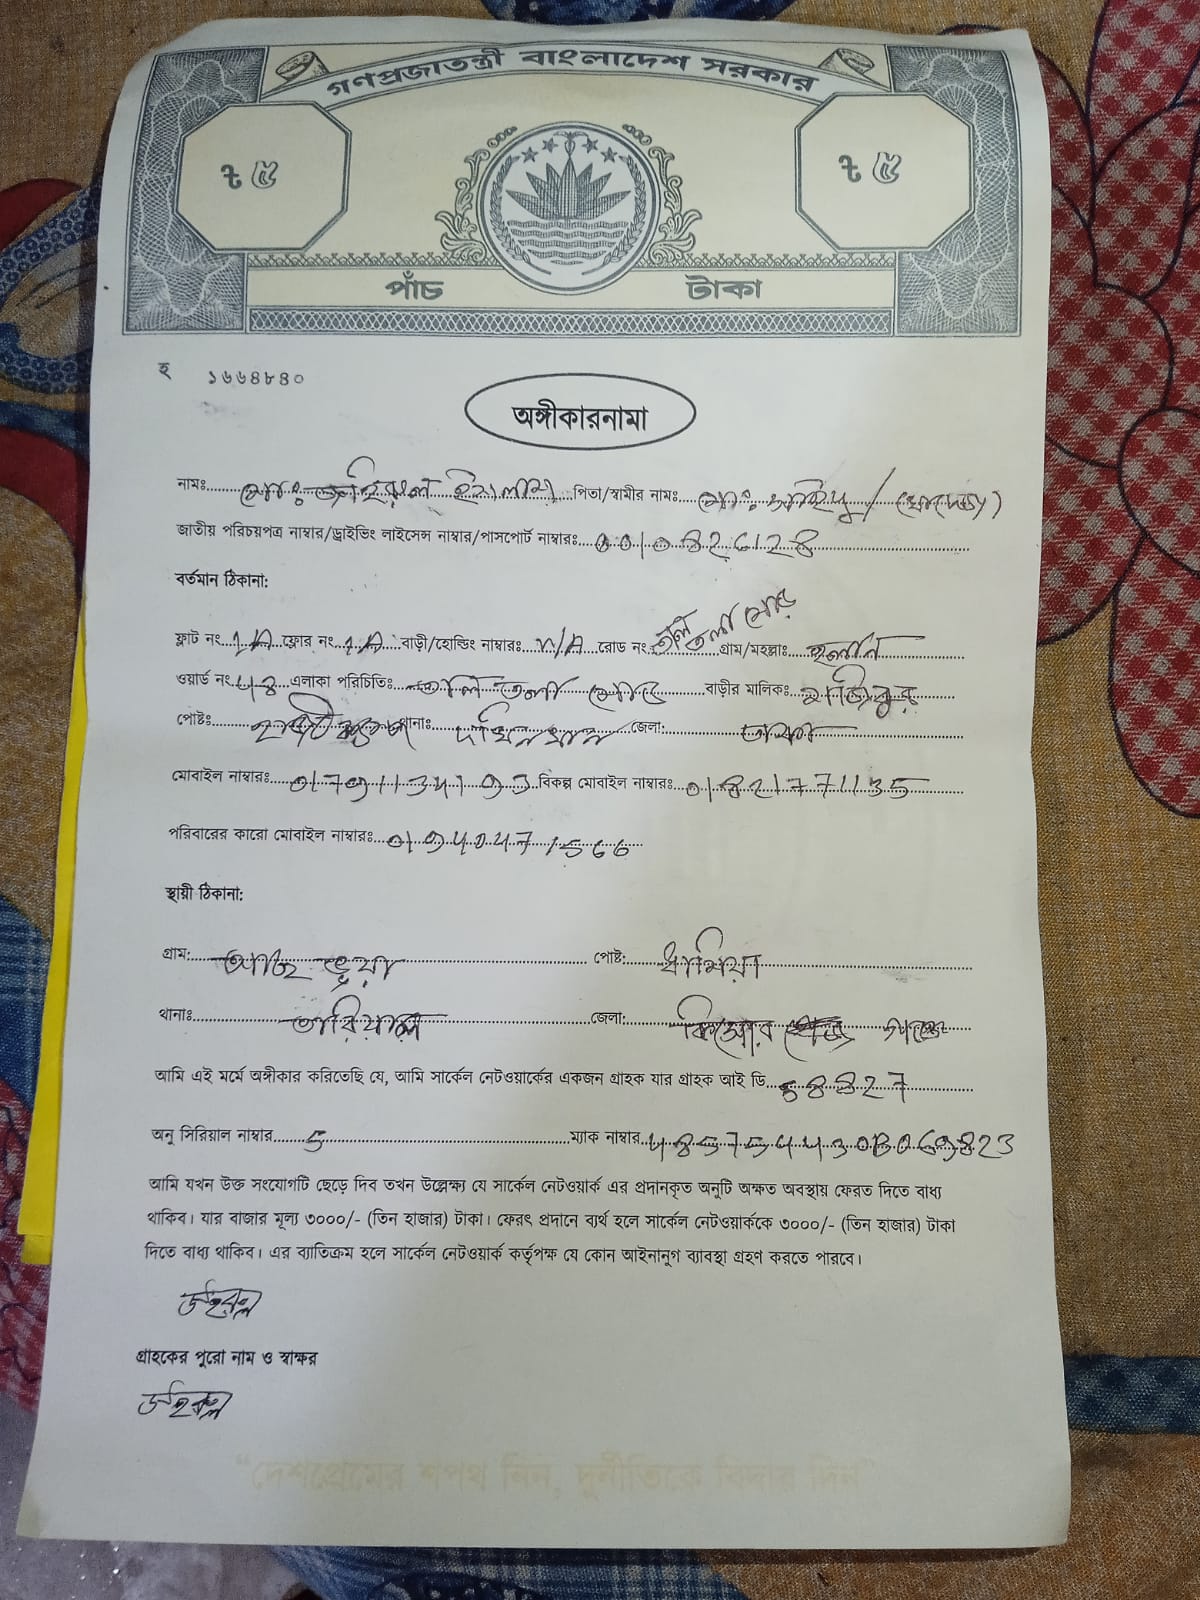 গণপ্রজাতন্ত্রী বাংলাদেশ সরকার
৳ ৫ ৳ ৫
পাঁচ টাকা
হ ১৬৬৪৮৪০
অঙ্গীকারনামা
নামঃ মোঃ জহিরুল ইসলাম পিতা/স্বামীর নামঃ মোঃ
জাতীয় পরিচয়পত্র নাম্বার/ড্রাইভিং লাইসেন্স নাম্বার/পাসপোর্ট নাম্বারঃ
বর্তমান ঠিকানা:
ফ্লাট নং 1A ফ্লোর নং 1A বাড়ী/হোল্ডিং নাম্বারঃ N/A রোড নং তালতলা মোড় গ্রাম/মহল্লাঃ হলান
ওয়ার্ড নং 48 এলাকা পরিচিতিঃ তালতলা মোড় বাড়ীর মালিকঃ
পোষ্টঃ থানাঃ দক্ষিনখান জেলা: ঢাকা
মোবাইল নাম্বারঃ বিকল্প মোবাইল নাম্বারঃ 01821771135
পরিবারের কারো মোবাইল নাম্বারঃ 01940471566
স্থায়ী ঠিকানা:
গ্রাম: পোষ্ট: ধামিয়া
থানাঃ জেলা: কিশোরগঞ্জ
আমি এই মর্মে অঙ্গীকার করিতেছি যে, আমি সার্কেল নেটওয়ার্কের একজন গ্রাহক যার গ্রাহক আই ডি
অনু সিরিয়াল নাম্বার 5 ম্যাক নাম্বার
আমি যখন উক্ত সংযোগটি ছেড়ে দিব তখন উল্লেক্ষ্য যে সার্কেল নেটওয়ার্ক এর প্রদানকৃত অনুটি অক্ষত অবস্থায় ফেরত দিতে বাধ্য
থাকিব। যার বাজার মূল্য ৩০০০/- (তিন হাজার) টাকা। ফেরৎ প্রদানে ব্যর্থ হলে সার্কেল নেটওয়ার্ককে ৩০০০/- (তিন হাজার) টাকা
দিতে বাধ্য থাকিব। এর ব্যাতিক্রম হলে সার্কেল নেটওয়ার্ক কর্তৃপক্ষ যে কোন আইনানুগ ব্যাবস্থা গ্রহণ করতে পারবে।
জহিরুল
গ্রাহকের পুরো নাম ও স্বাক্ষর
জহিরুল
"দেশপ্রেমের শপথ নিন, দুর্নীতিকে বিদায় দিন"